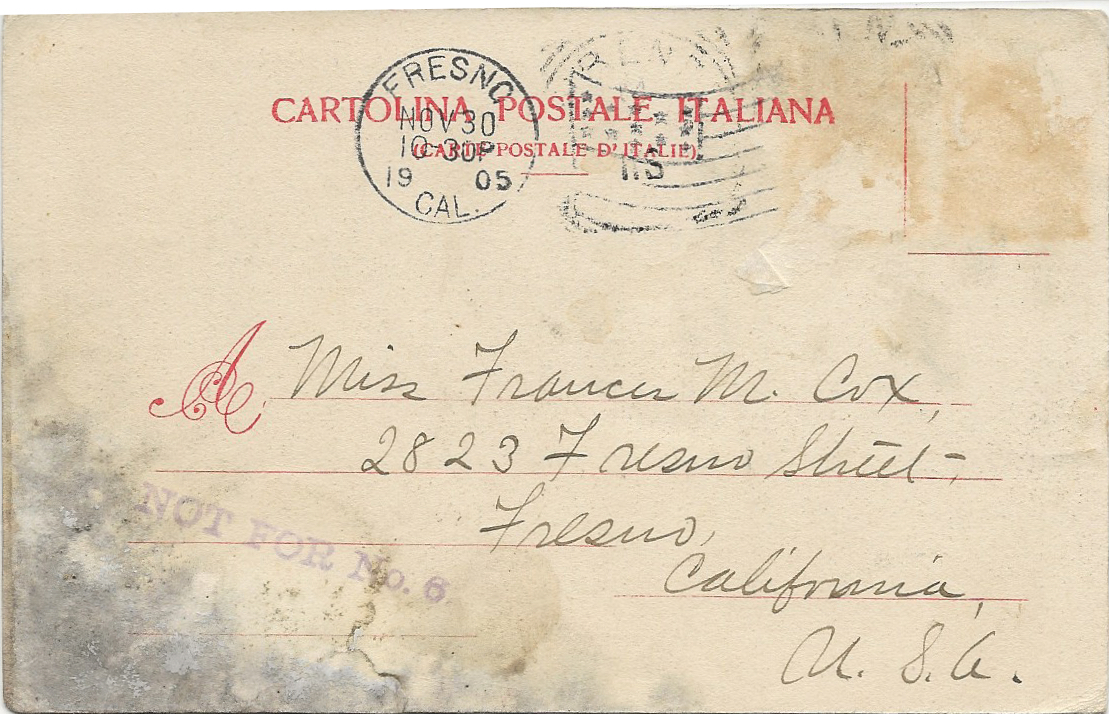 CARTOLINA POSTALE ITALIANA
(CARTE POSTALE D'ITALIE)
FRESNO
NOV 30
10-30P
19 05
CAL.
A Miss Frances M. Cox,
2823 Fresno Street,
Fresno,
California,
U. S. A.
NOT FOR No. 6